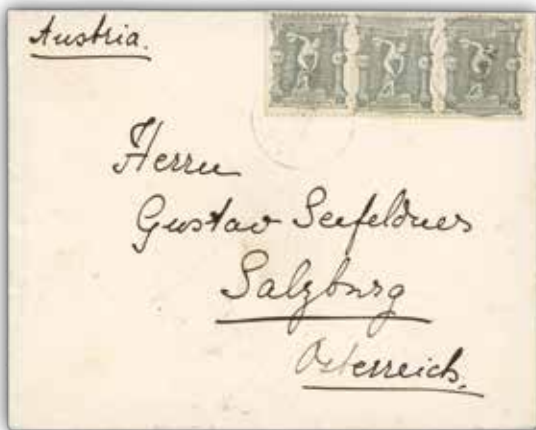 Austria.
Herrn
Gustav Seefeldner
Salzburg
Österreich.